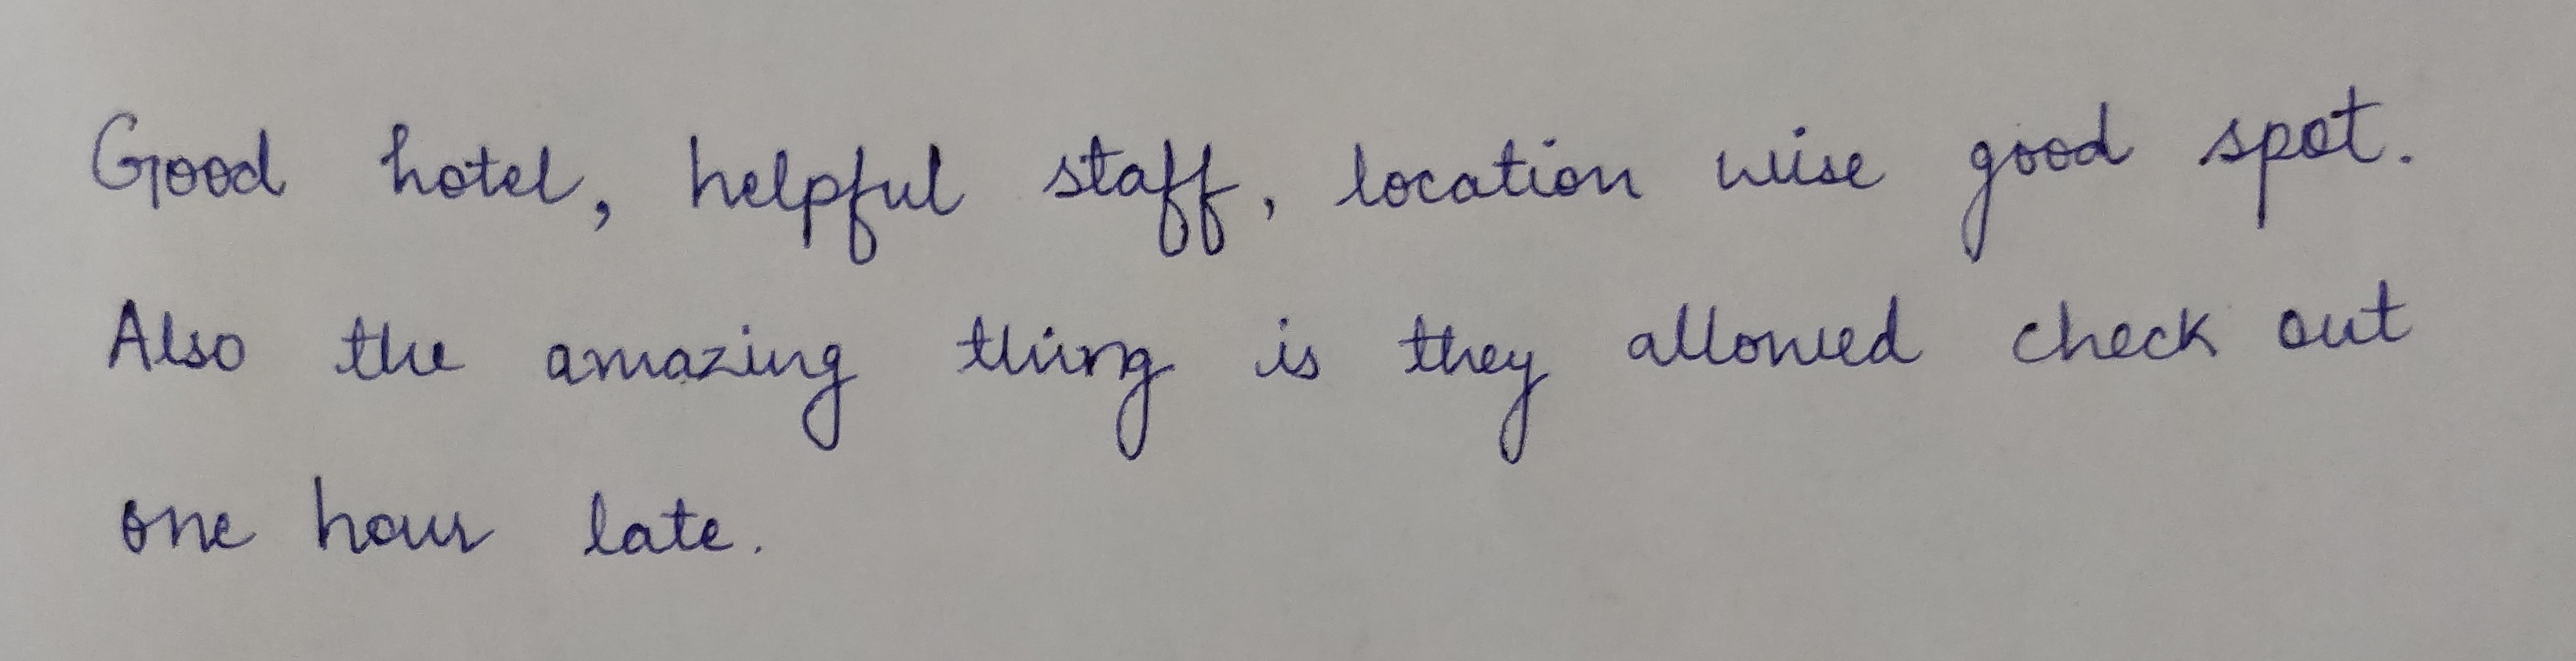 Good hotel, helpful staff, location wise good spot.
Also the amazing thing is they allowed check out
one hour late.